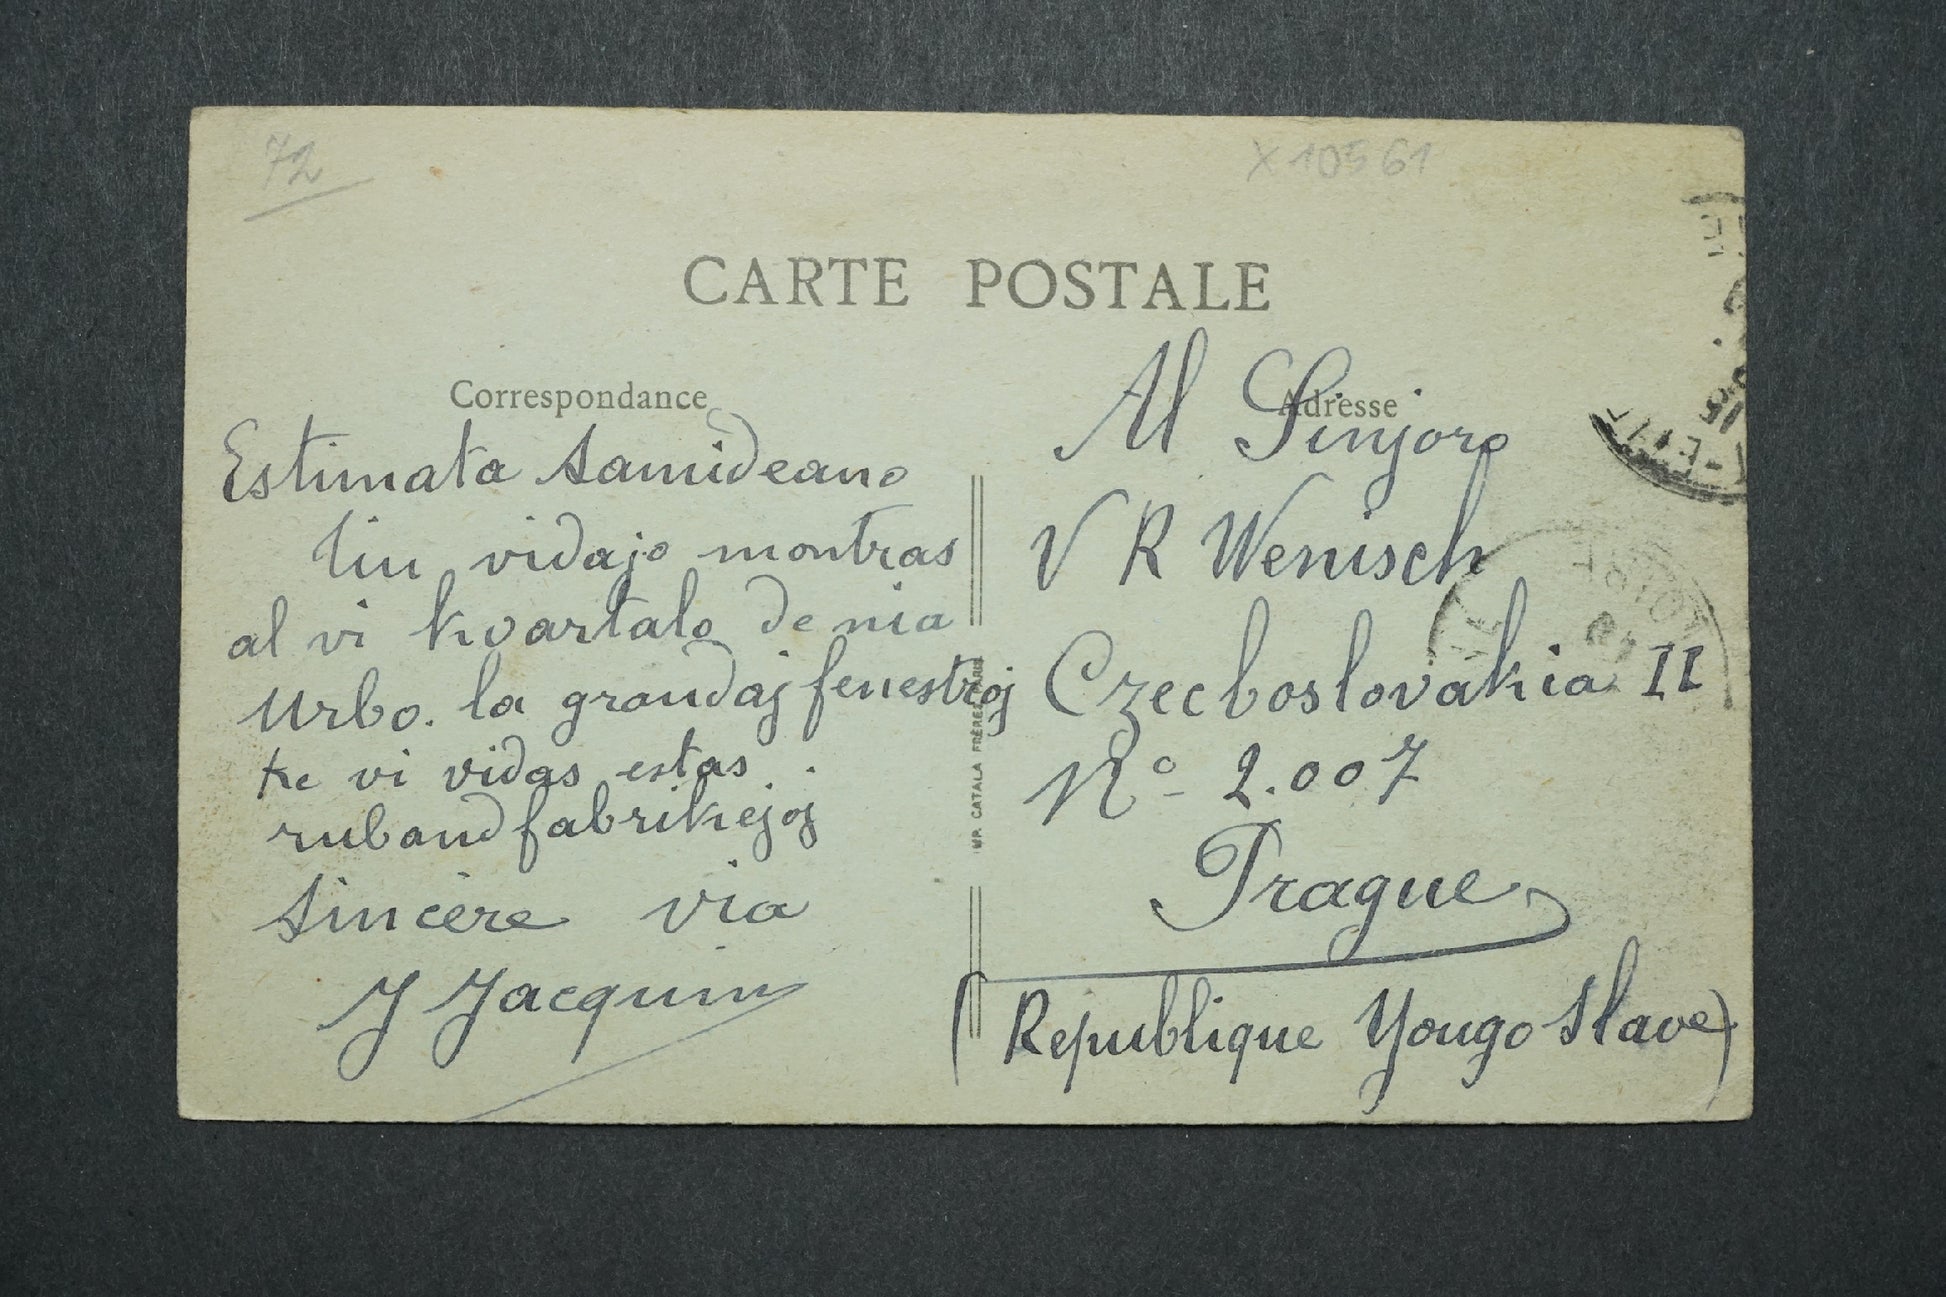 72
X 10561
CARTE POSTALE
Correspondance
Estimata Samideano
tiu vidajo montras
al vi kvartalo de nia
urbo. la grandaj fenestroj
ke vi vidas estas
ruband fabrikejoj
Sincère via
J Jacquin
IMP. CATALA FRÈRES PARIS
Adresse
Al Sinjoro
V R Wenisch
Czecboslovakia II
No 2.007
Prague
(Republique Yougo Slave)